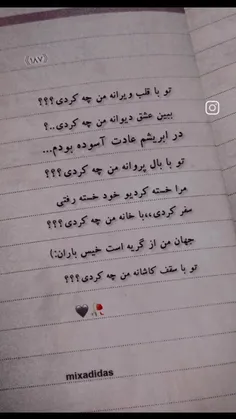 《۱۸۷》
تو با قلب ویرانه من چه کردی؟؟؟
ببین عشق دیوانه من چه کردی..؟
در ابریشم عادت آسوده بودم...
تو با بال پروانه من چه کردی؟؟؟
مرا خسته کردیو خود خسته رفتی
سفر کردی،،با خانه من چه کردی؟؟؟
جهان من از گریه است خیس باران:)
تو با سقف کاشانه من چه کردی؟؟؟
🥀🖤
mixadidas